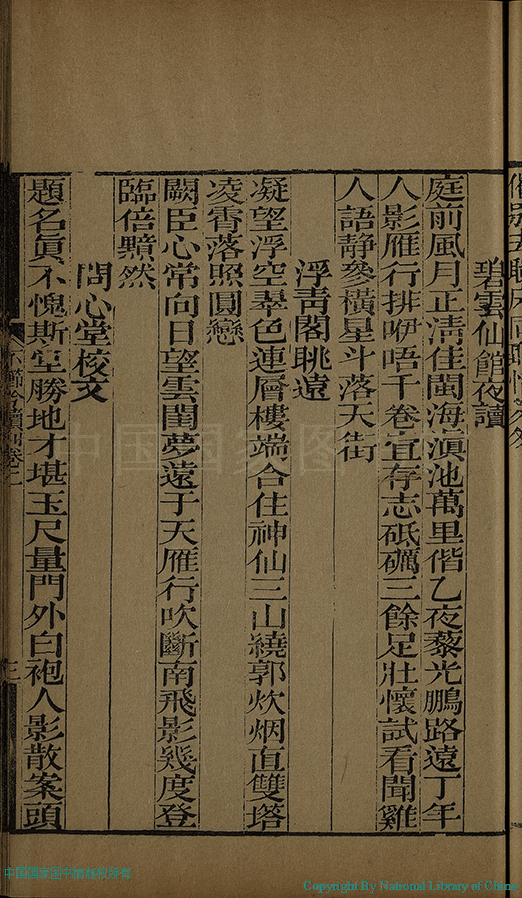 碧雲仙館夜讀
庭前風月正淸佳閩海滇池萬里偕乙夜藜光鵬路遠丁年
人影雁行排咿唔千卷宜存志砥礪三餘足壯懷試看聞雞
人語靜參橫星斗落天街
浮靑閣眺遠
凝望浮空翠色連層樓端合住神仙三山繞郭炊烟直雙塔
凌霄落照圓戀
闕臣心常向日望雲閨夢遠于天雁行吹斷南飛影幾度登
臨倍黯然
問心堂校文
題名眞不愧斯堂勝地才堪玉尺量門外白袍人影散案頭
三
中国国家图
中国国家图书馆
Copyright By National Library of China